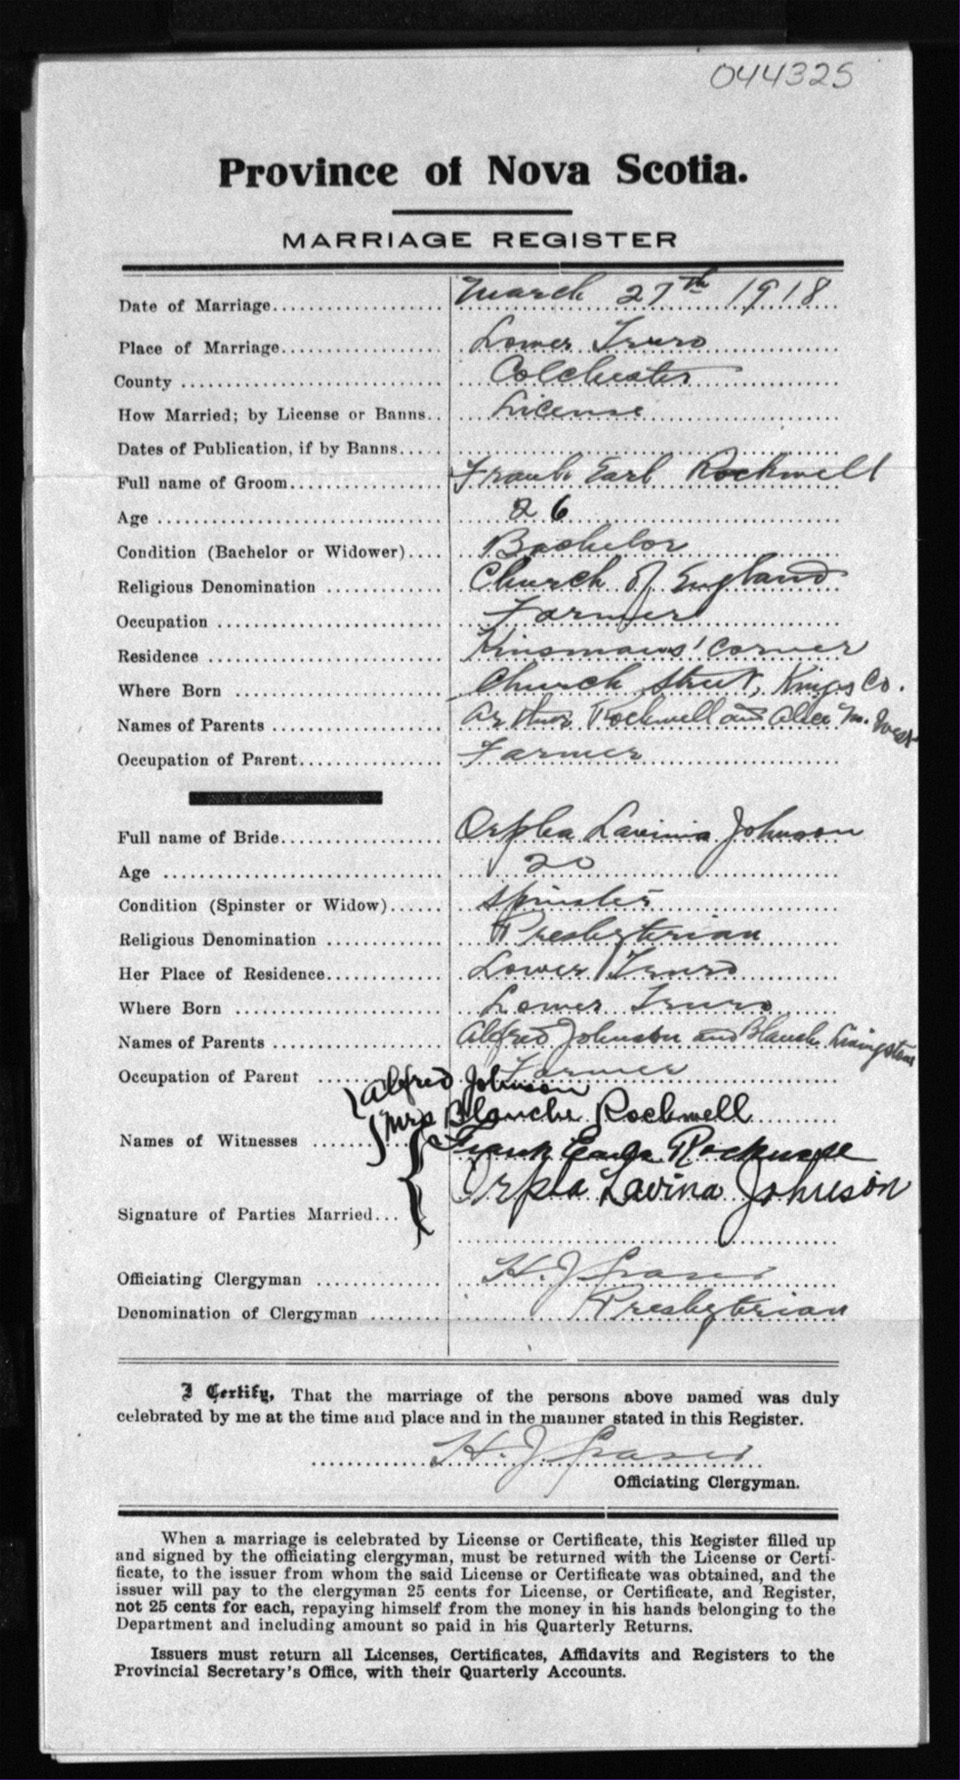 044325
Province of Nova Scotia.
MARRIAGE REGISTER
Date of Marriage March 27th 1918
Place of Marriage Lower Truro
County Colchester
How Married; by License or Banns License
Dates of Publication, if by Banns
Full name of Groom Frank Earl Rockwell
Age 26
Condition (Bachelor or Widower) Bachelor
Religious Denomination Church of England
Occupation Farmer
Residence Kinsmans' Corner
Where Born Church Street, Kings Co.
Names of Parents Arthur Rockwell and Alice M. West
Occupation of Parent Farmer
Full name of Bride Orpha Lavinia Johnson
Age 20
Condition (Spinster or Widow) Spinster
Religious Denomination Presbyterian
Her Place of Residence Lower Truro
Where Born Lower Truro
Names of Parents Alfred Johnson and Blanche Livingstone
Occupation of Parent Farmer
Alfred Johnson
Mrs Blanche Rockwell
Names of Witnesses
Frank Earle Rockwell
Orpha Lavina Johnson
Signature of Parties Married
Officiating Clergyman H. J. Fraser
Denomination of Clergyman Presbyterian
I Certify, That the marriage of the persons above named was duly
celebrated by me at the time and place and in the manner stated in this Register.
H. J. Fraser
Officiating Clergyman.
When a marriage is celebrated by License or Certificate, this Register filled up
and signed by the officiating clergyman, must be returned with the License or Certi-
ficate, to the issuer from whom the said License or Certificate was obtained, and the
issuer will pay to the clergyman 25 cents for License, or Certificate, and Register,
not 25 cents for each, repaying himself from the money in his hands belonging to the
Department and including amount so paid in his Quarterly Returns.
Issuers must return all Licenses, Certificates, Affidavits and Registers to the
Provincial Secretary's Office, with their Quarterly Accounts.